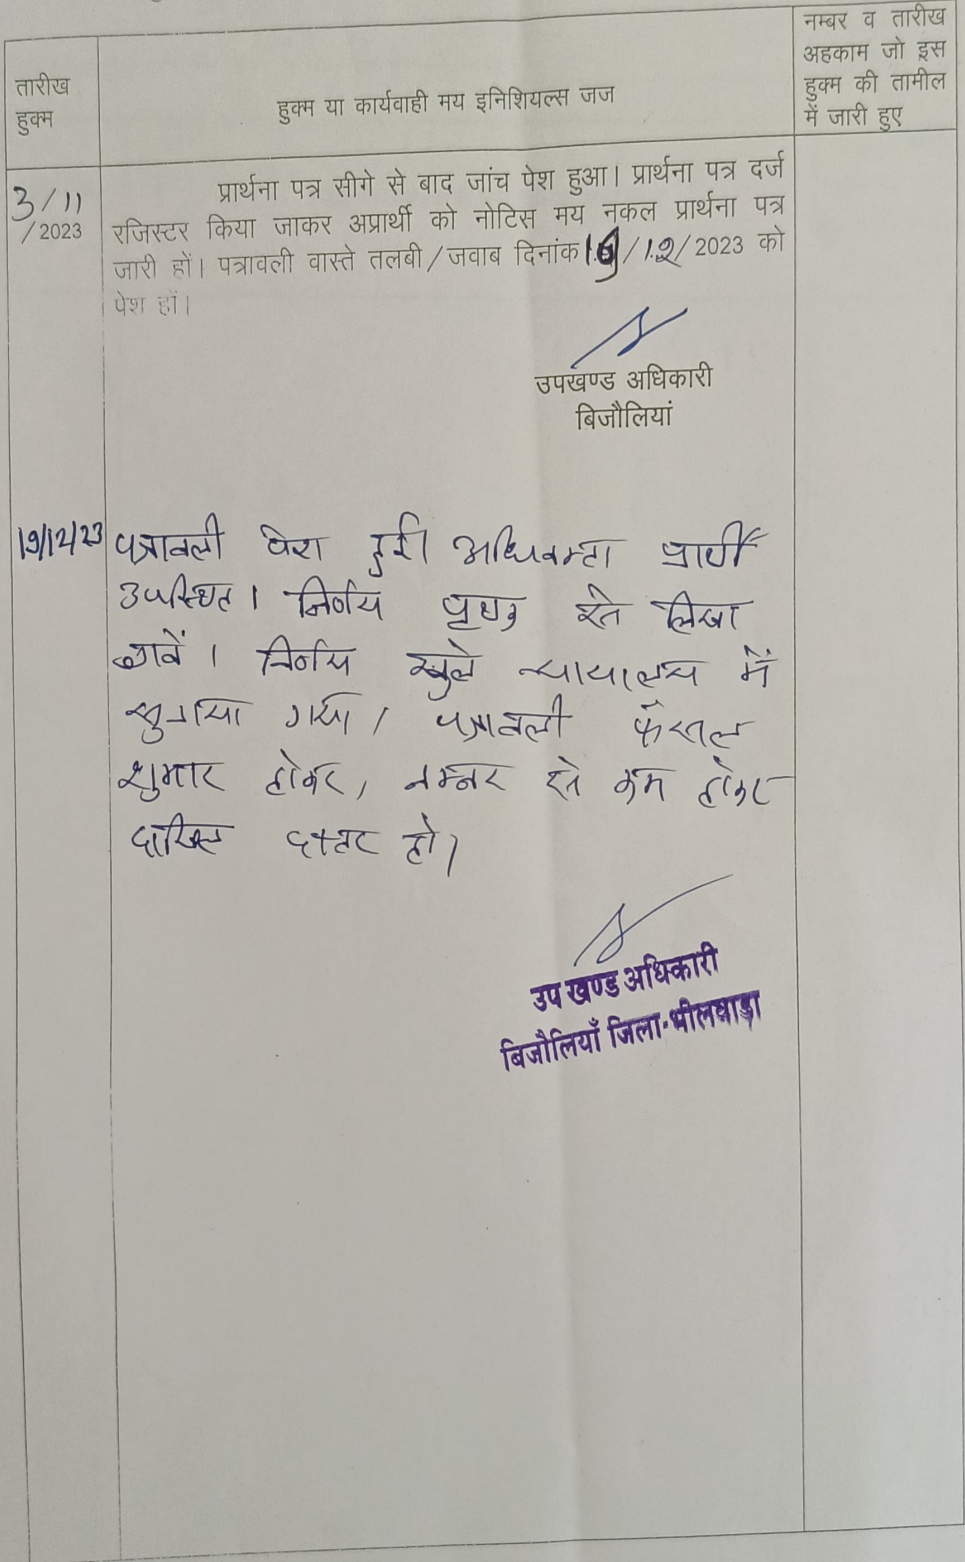 तारीख
हुक्म
हुक्म या कार्यवाही मय इनिशियल्स जज
नम्बर व तारीख
अहकाम जो इस
हुक्म की तामील
में जारी हुए
3/11
/2023
प्रार्थना पत्र सीगे से बाद जांच पेश हुआ। प्रार्थना पत्र दर्ज
रजिस्टर किया जाकर अप्रार्थी को नोटिस मय नकल प्रार्थना पत्र
जारी हों। पत्रावली वास्ते तलबी/जवाब दिनांक /12/2023 को
पेश हों।
उपखण्ड अधिकारी
बिजौलियां
19/12/23
पत्रावली पेश हुई। अधिवक्ता प्रार्थी
उपस्थित। निर्णय पृथक से लिखा
जावें। निर्णय खुले न्यायालय में
सुनाया गया। पत्रावली फैसल
शुमार होकर, नम्बर से कम होकर
दाखिल दफ्तर हो।
उप खण्ड अधिकारी
बिजौलियाँ जिला-भीलवाड़ा